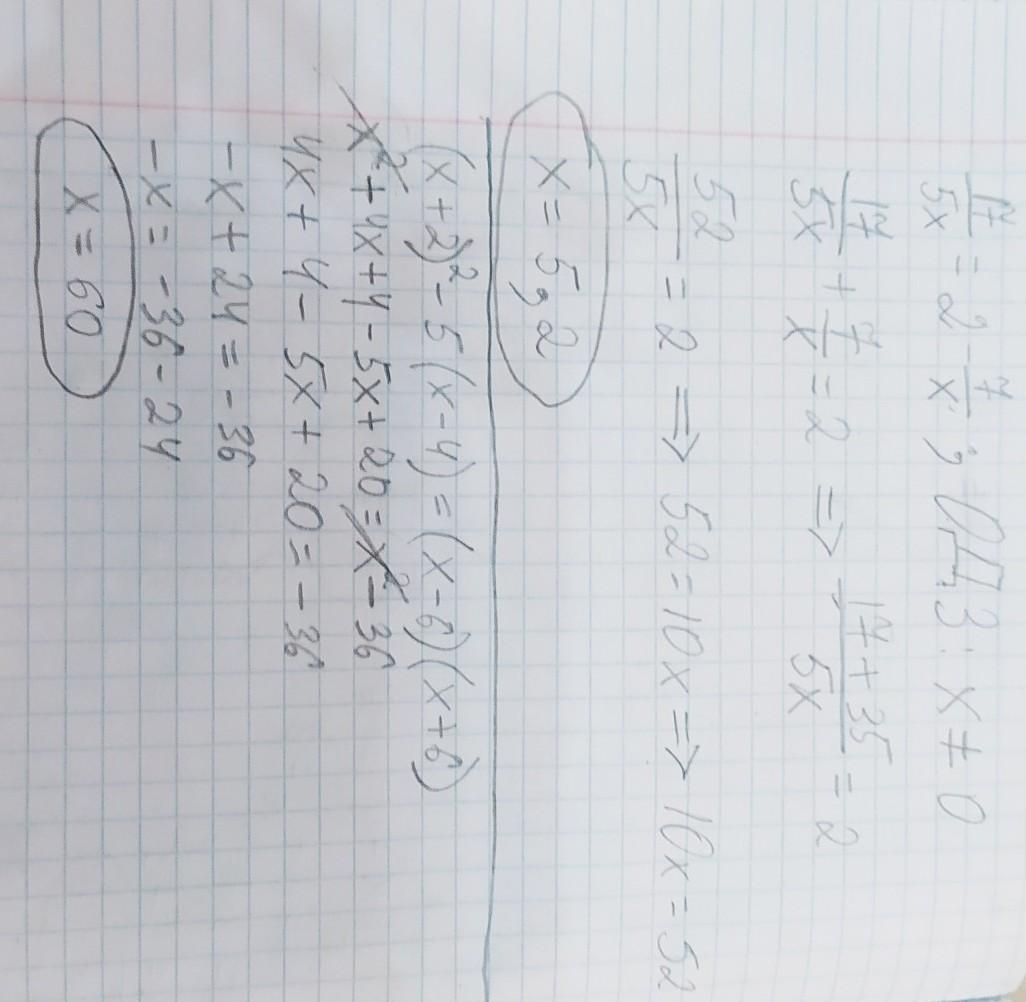 17/5x = 2 - 7/x ; ОДЗ: x ≠ 0
17/5x + 7/x = 2 ⇒ (17 + 35)/5x = 2
52/5x = 2 ⇒ 52 = 10x ⇒ 10x = 52
x = 5,2
(x + 2)² - 5(x - 4) = (x - 6)(x + 6)
x² + 4x + 4 - 5x + 20 = x² - 36
4x + 4 - 5x + 20 = - 36
- x + 24 = - 36
- x = - 36 - 24
x = 60